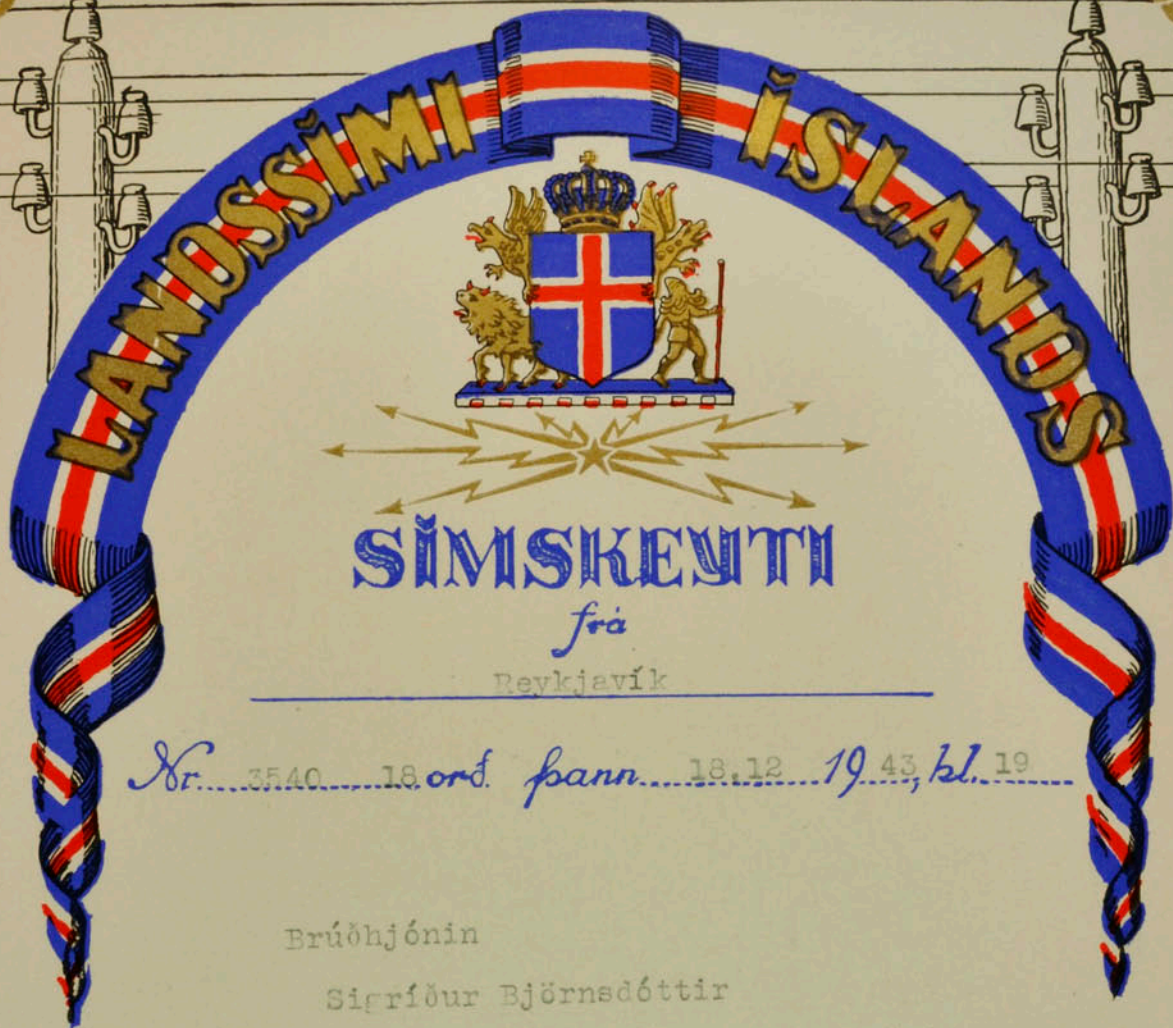 LANDSSÍMI ÍSLANDS
SÍMSKEYTI
frá
Reykjavík
Nr. 3540 18 orð. þann 18.12 1943, kl. 19
Brúðhjónin
Sigríður Björnsdóttir